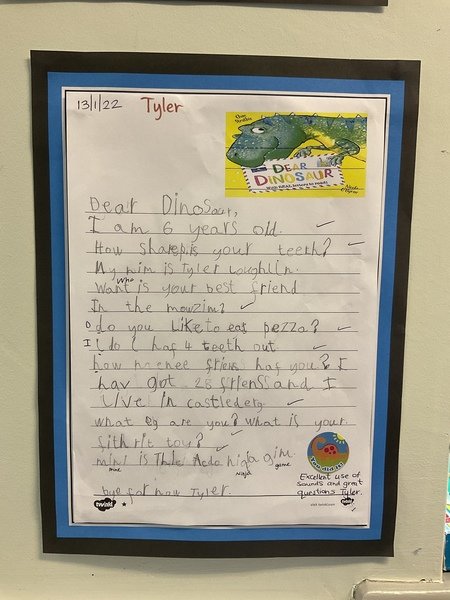 13/1/22 Tyler
DEAR DINOSAUR
WITH REAL letters to read!
Dear Dinosaur,
I am 6 years old.
How sharep is your teeth?
My nim is Tyler Loughlin.
Who
Want is your best friend
In the mowzim?
D do you like to eat pezza?
I i do I haf 4 teeth out
how menee friens haf you? I
hav got 28 friens and I
live in castlederg
what eg are you? what is your
fithrit toy?
mini is Acdo nigla gim.
mine ninja game
bye for now Tyler
You did it!
Excellent use of
sounds and great
questions Tyler.
twinkl
visit twinkl.com